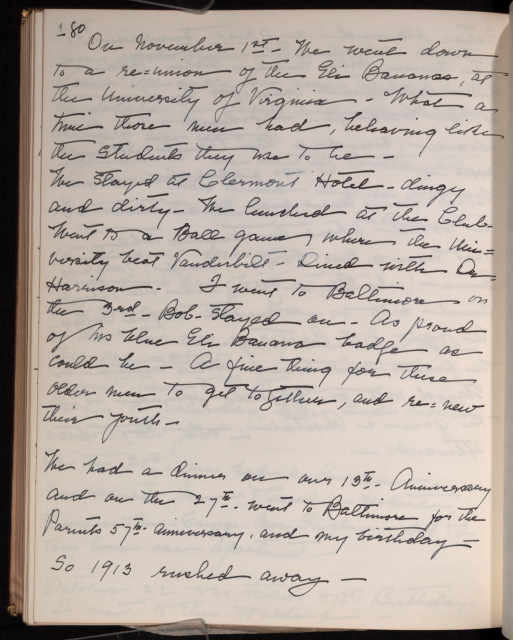 180
On November 1st - We went down
to a re=union of the Eli Bananas, at
the University of Virginia - What a
time those men had, behaving like
the students they use to be -
We stayed at Clermont Hotel - dingy
and dirty - We lunched at the Club -
Went to a Ball game, where the Uni=
versity beat Vanderbilt - Dined with Dr=
Harrison - I went to Baltimore on
the 3rd - Bob - stayed on - As proud
of his blue Eli Banana badge as
could be - A fine thing for these
older men to get together, and re=new
their youth -
We had a dinner on our 13th - Anniversary
and on the 27th - went to Baltimore for the
Parents 57th anniversary, and my birthday -
So 1913 rushed away -